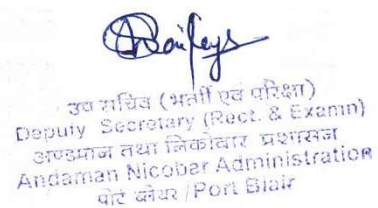 उप सचिव (भर्ती एवं परिक्षा)
Deputy Secretary (Rect. & Examn)
अण्डमान तथा निकोबार प्रशासन
Andaman Nicobar Administration
पोर्ट ब्लेयर /Port Blair